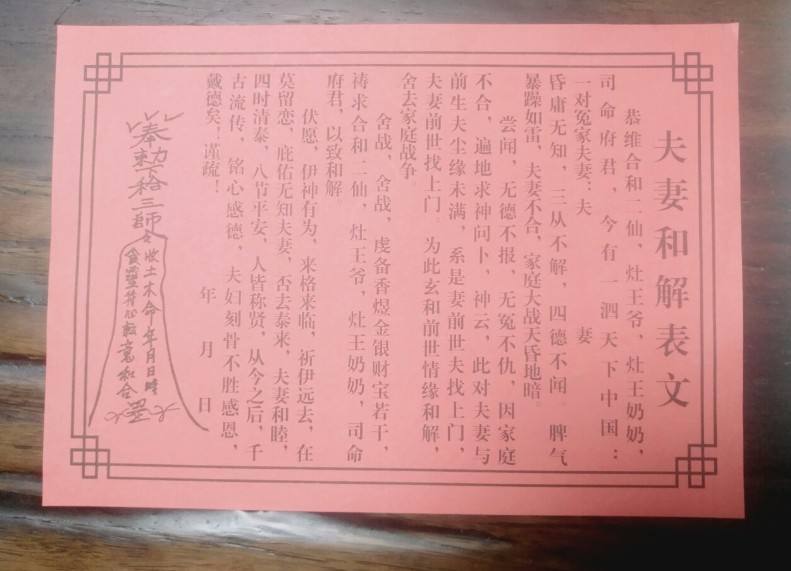 夫妻和解表文
恭维合和二仙，灶王爷，灶王奶奶，
司命府君，今有一泗天下中国：
一对冤家夫妻：夫　妻
昏庸无知，三从不解，四德不闻　脾气
暴躁如雷，夫妻不合，家庭大战天昏地暗。
尝闻，无德不报，无冤不仇，因家庭
不合，遍地求神问卜，神云，此对夫妻与
前生夫尘缘未满，系是妻前世夫找上门，
夫妻前世找上门　为此玄和前世情缘和解，
舍去家庭战争
舍战，舍战，虔备香煜金银财宝若干，
祷求合和二仙，灶王爷，灶王奶奶，司命
府君，以致和解
伏愿，伊神有为，来格来临，祈伊远去，在
莫留恋，庇佑无知夫妻，否去泰来，夫妻和睦，
四时清泰，八节平安，人皆称贤，从今之后，千
古流传，铭心感德，夫妇刻骨不胜感恩，
戴德矣！谨疏！
年　月　日
奉勅
三師
收土木命年月日時
和合